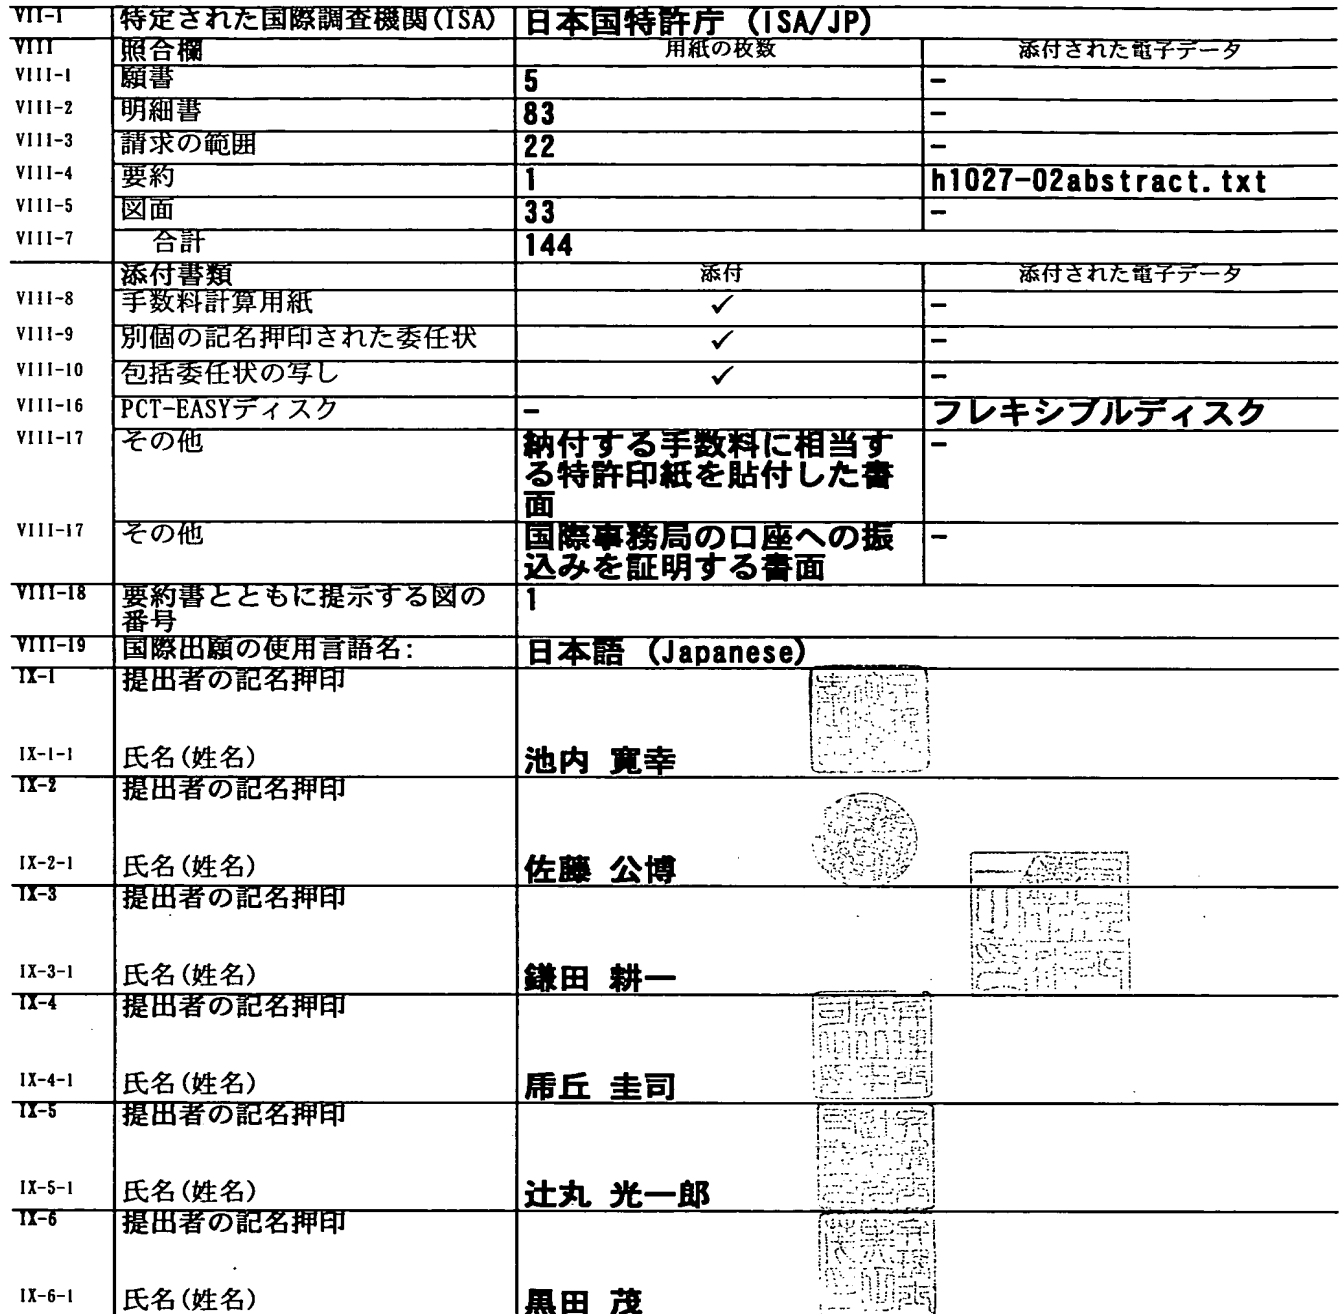 VII-1 特定された国際調査機関(ISA) 日本国特許庁 (ISA/JP)
VIII 照合欄 用紙の枚数 添付された電子データ
VIII-1 願書 5 -
VIII-2 明細書 83 -
VIII-3 請求の範囲 22 -
VIII-4 要約 1 h1027-02abstract.txt
VIII-5 図面 33 -
VIII-7 合計 144
添付書類 添付 添付された電子データ
VIII-8 手数料計算用紙 ✓ -
VIII-9 別個の記名押印された委任状 ✓ -
VIII-10 包括委任状の写し ✓ -
VIII-16 PCT-EASYディスク - フレキシブルディスク
VIII-17 その他 納付する手数料に相当す -
る特許印紙を貼付した書
面
VIII-17 その他 国際事務局の口座への振 -
込みを証明する書面
VIII-18 要約書とともに提示する図の 1
番号
VIII-19 国際出願の使用言語名: 日本語 (Japanese)
IX-1 提出者の記名押印
IX-1-1 氏名(姓名) 池内 寛幸
IX-2 提出者の記名押印
IX-2-1 氏名(姓名) 佐藤 公博
IX-3 提出者の記名押印
IX-3-1 氏名(姓名) 鎌田 耕一
IX-4 提出者の記名押印
IX-4-1 氏名(姓名) 乕丘 圭司
IX-5 提出者の記名押印
IX-5-1 氏名(姓名) 辻丸 光一郎
IX-6 提出者の記名押印
IX-6-1 氏名(姓名) 黒田 茂